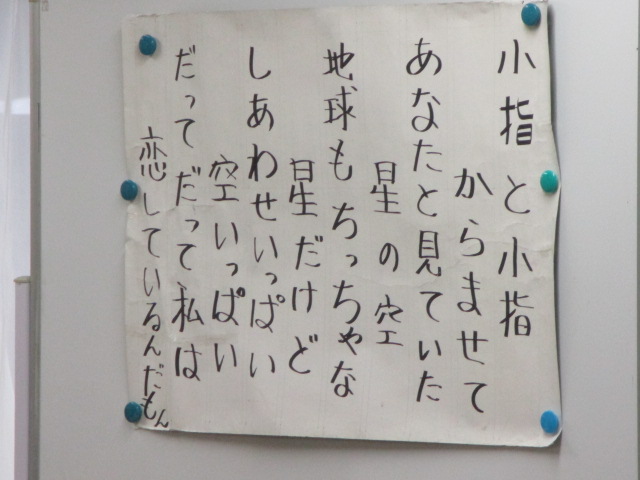 小指と小指
からませて
あなたと見ていた
星の空
地球もちっちゃな
星だけど
しあわせいっぱい
空いっぱい
だってだって私は
恋しているんだもん